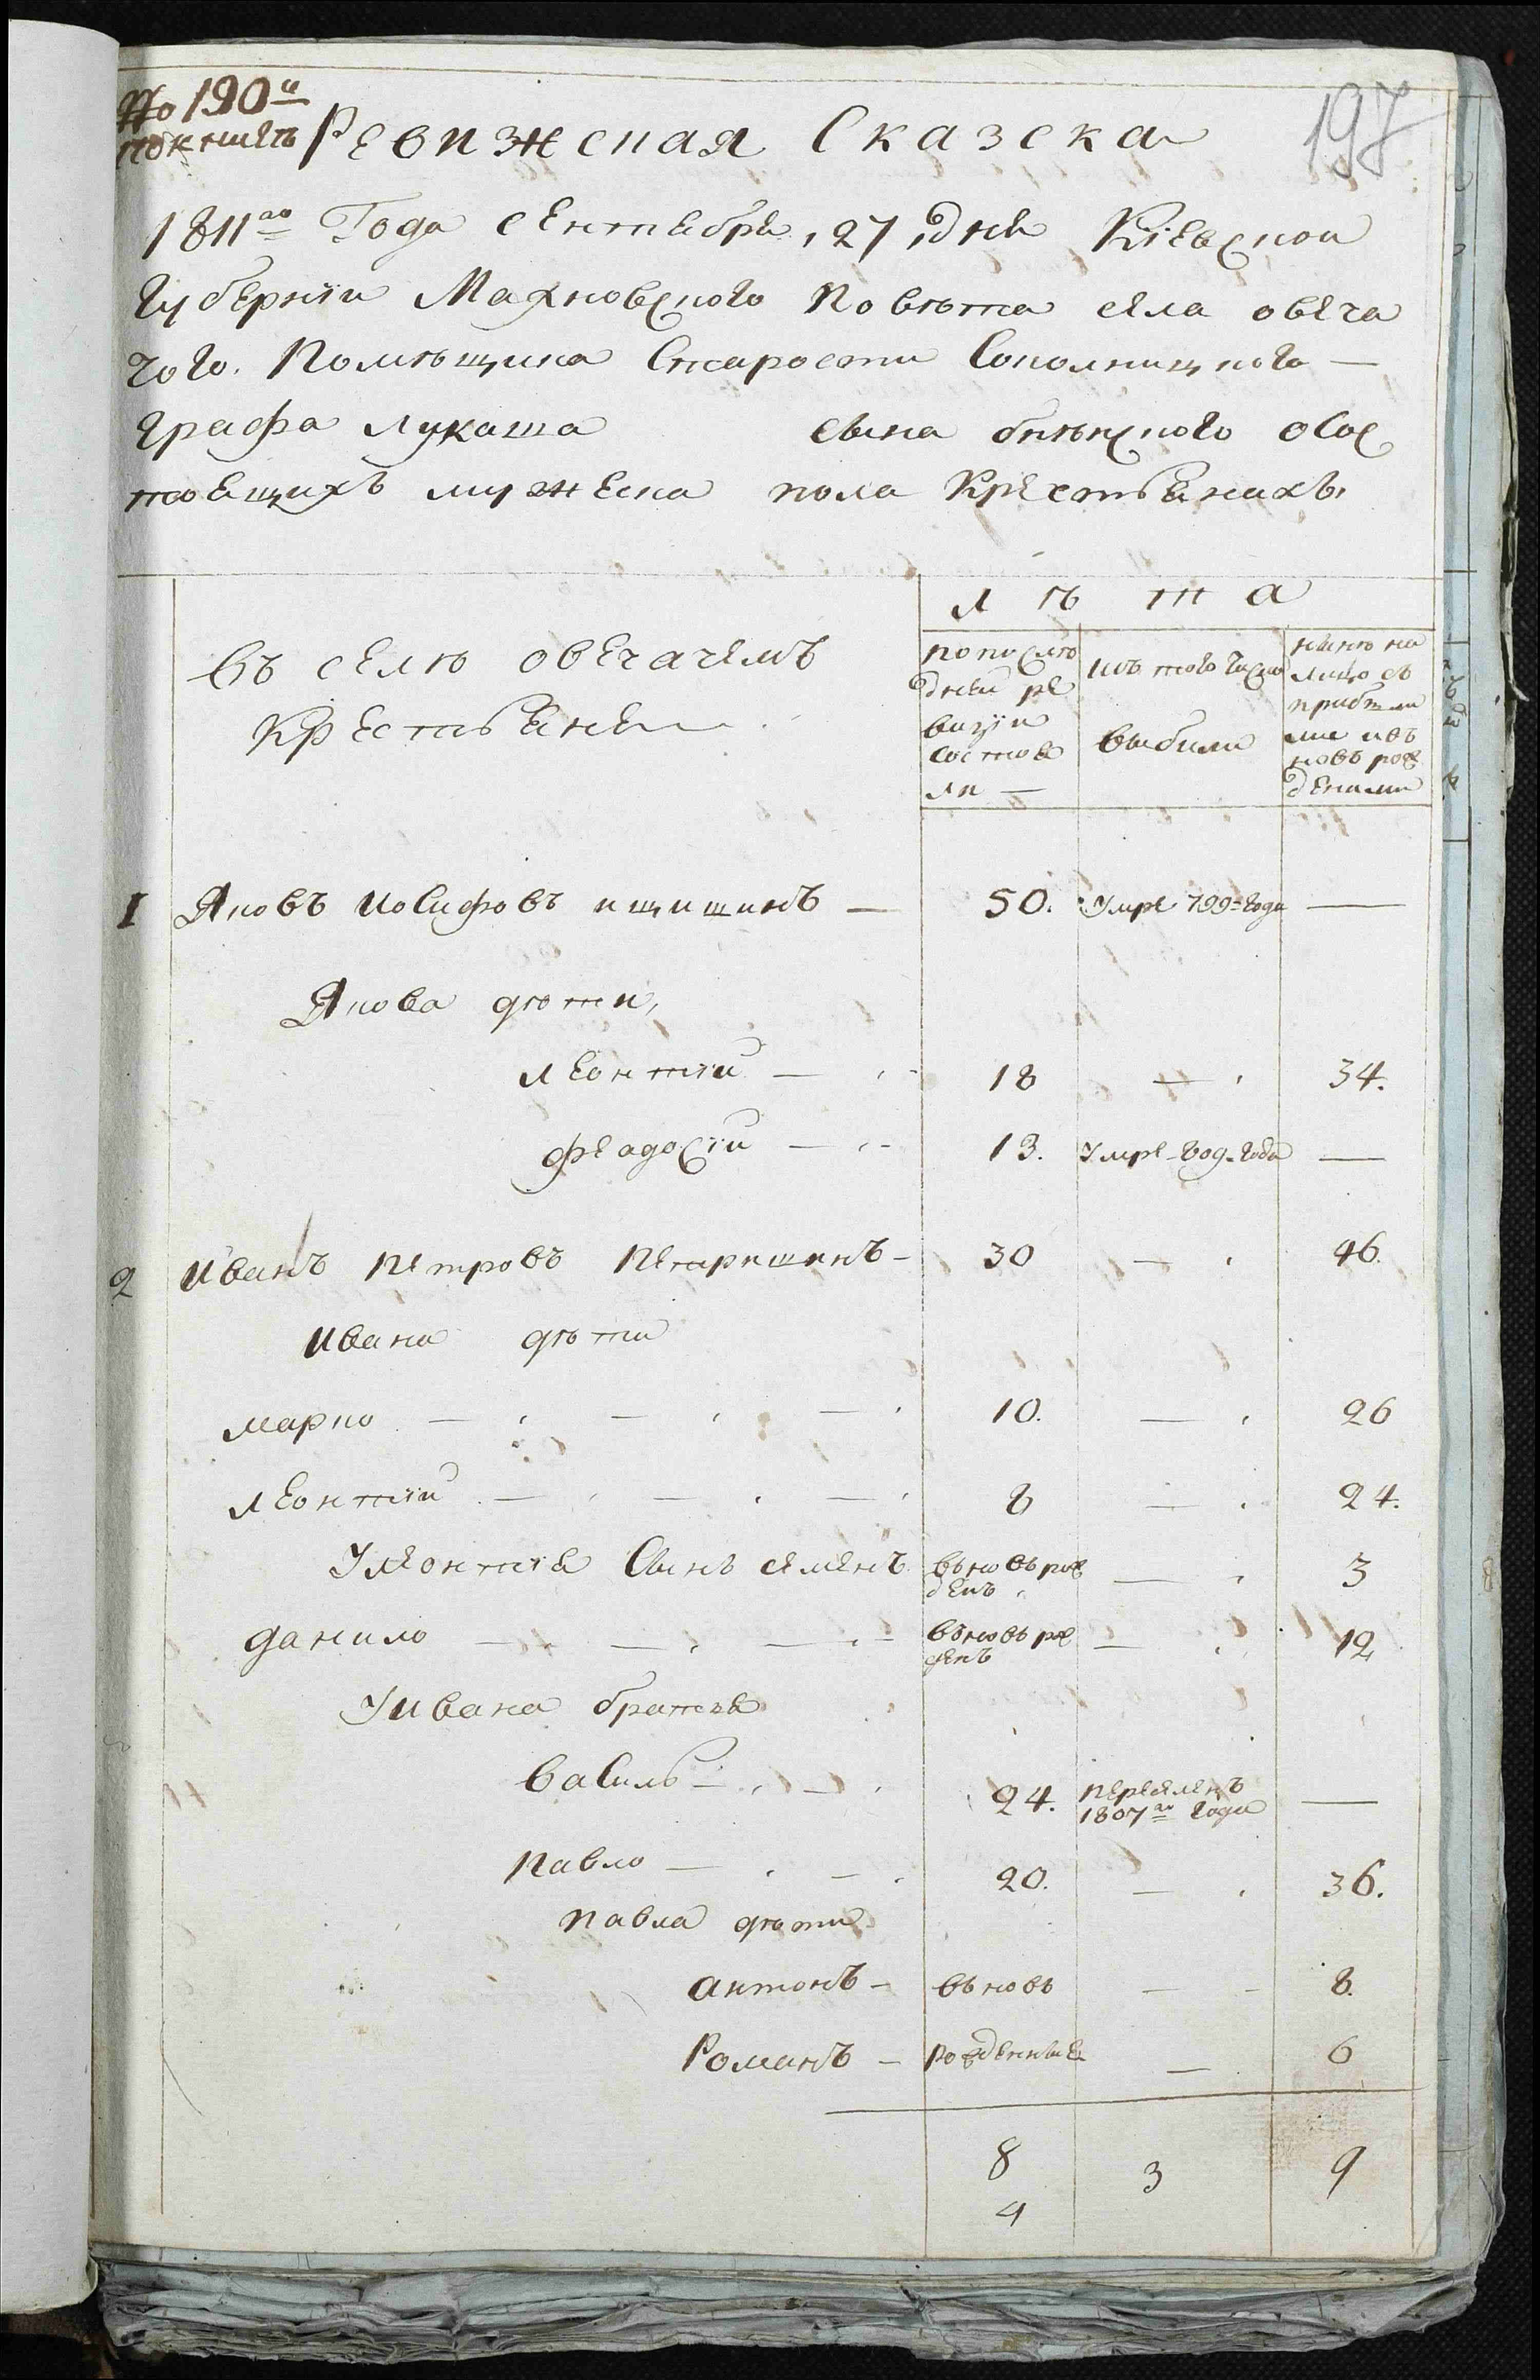 № 190й
197
Ревизская Сказска
1811го Года сентября, 27, дня Кіевской
Губерніи Махновского Повѣта села овеча
чого. Помѣщика Старости Соколницкого —
Графа лукаша сына бнѣнского осос
тоящихъ мужеска пола Крестьянахъ,
лѣта
въ селѣ овечачемъ
Крестьяне
по послѣ
дней ре
визіи
состоя
ли —
изъ того числа
выбили
нынѣ на
лицо съ
прибшли
ми изъ
новъ рож
деними
1 Яковъ иосифовъ ищишинъ — 50. Умре 799=года —
Якова дѣти,
леонтій — 18 — 34.
феадосій — 13. Умре год. года —
2 иванъ петровъ Петришинъ — 30 — 46.
ивана дѣти
марко — — — 10. — 26
леонтій — — — 8 — 24.
У леонтія Сынъ семенъ въновь рож — 3
денъ
данило — — — въновь ро — 12
денъ
У ивана братья
василь — — 24. переселенъ —
1807го года
павло — — 20. — 36.
павла дѣти
антонъ — въновь — 8.
Романъ — рожденные — 6
8 3 9
4